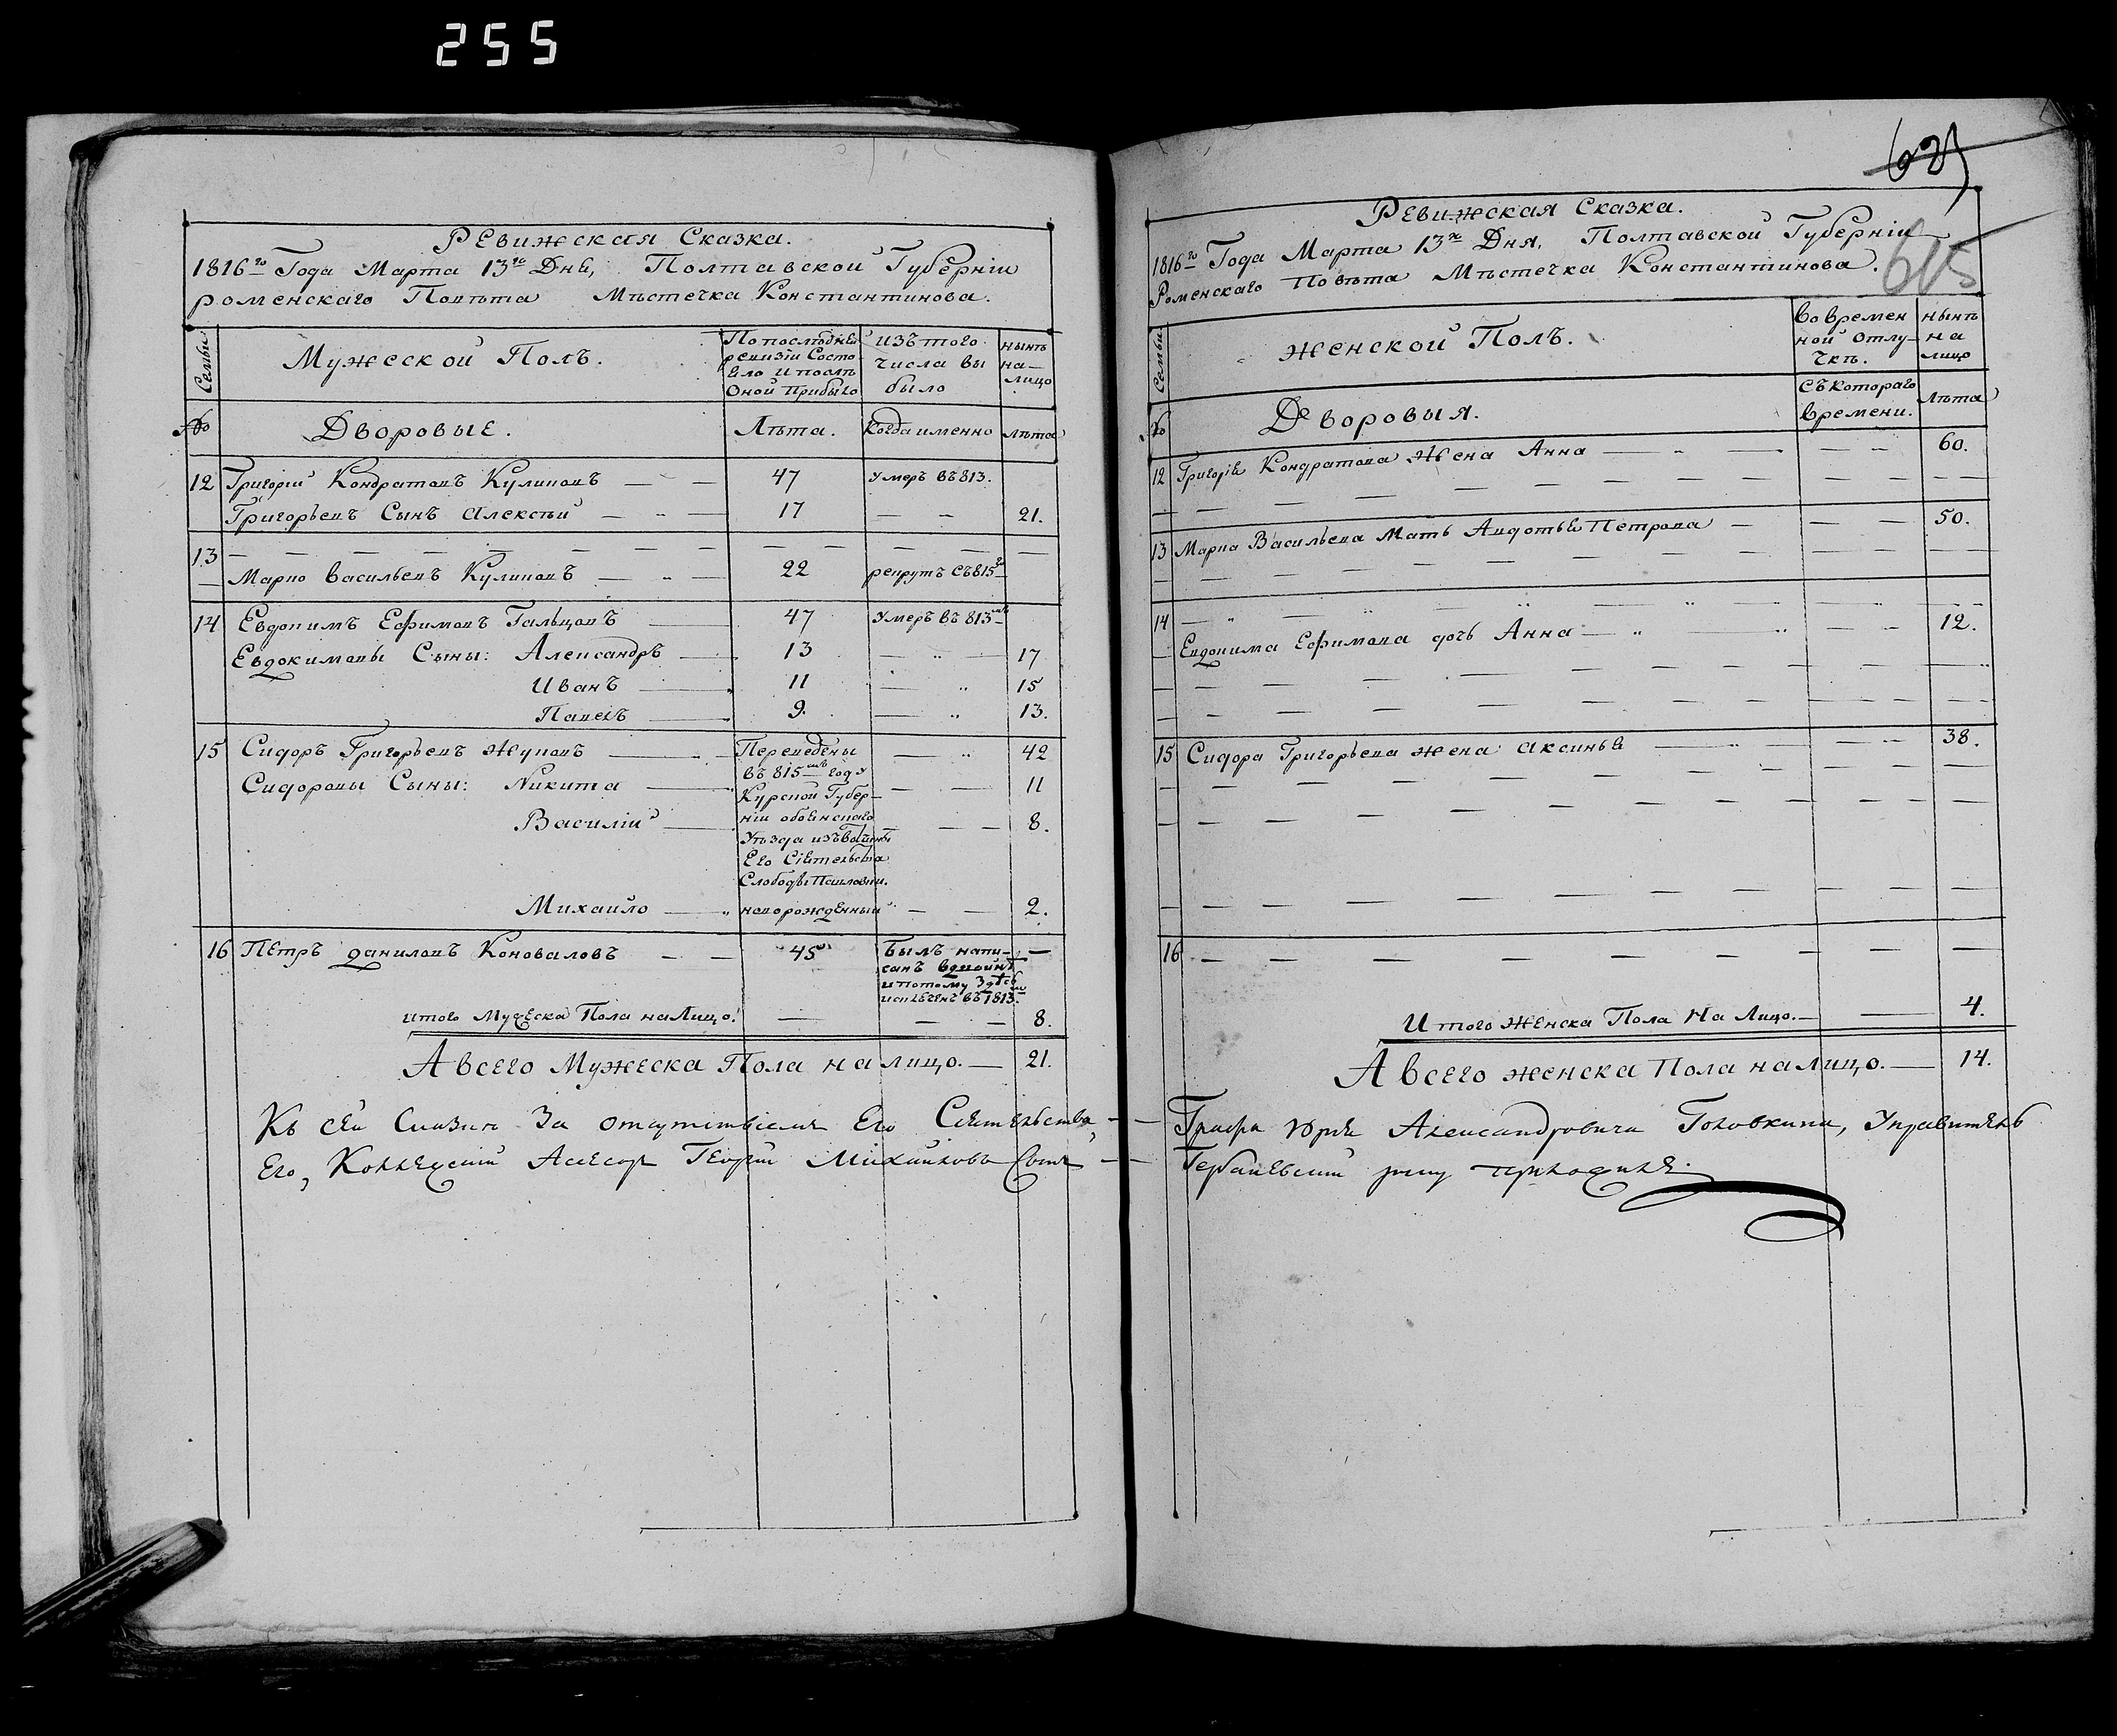 255
Ревижская Сказка.
1816го Года Марта 13го Дня, Полтавской Губерніи
роменскаго Повѣта Мѣстечка Константинова.
Семьи
Мужеской Полъ.
По последней
ревизіи Состо
яло и послѣ
Оной Прибыло
изъ того
числа вы
было
нынѣ
на—
лицо
№
Дворовые.
Лѣта.
Когда именно
лѣта
12 Григорій Кондратовъ Куликовъ — — 47 умеръ въ 813.
Григорьевъ Сынъ Алексѣй — „ — 17 — — 21.
13 — — — — — — — — — — — —
Марко Васильевъ Куликовъ — „ — 22 рекрутъ съ 815го
14 Евдокимъ Ефимовъ Гальцовъ — 47 умеръ въ 813мъ
Евдокимовы Сыны: Александръ — 13 — „ — 17
Иванъ — 11 — „ 15
Павелъ — 9. — „ 13.
15 Сидоръ Григорьевъ Жуковъ — „ — „ 42
Переведены
въ 815мъ году
Сидоровы Сыны: Никита — — — 11
Курской Губер—
ніи обоянскаго
Василій — — — 8.
Уѣзда изъ вотчины
Его Сіятельства
Слободы
Михайло — „ новорожденный — — 2.
16 Петръ Даниловъ Коноваловъ — — 45 —
Былъ напи—
санъ вдвойнѣ
и потому здѣсь
исключенъ въ 1813мъ
итого Мужеска Пола на Лицо. — — — 8.
А всего Мужеска Пола на лицо. — 21.
Къ сей Сказкѣ За отсутствіемъ Его Сіятельства, —
Его, Коллежскій Асесоръ Георгій Михайловъ Сынъ —
625
615
Ревижская Сказка.
1816го Года Марта 13го Дня, Полтавской Губерніи
Роменскаго Повѣта Мѣстечка Константинова.
Семьи
Женской Полъ.
Во времен
ной отлу—
чкѣ.
нынѣ
на
лицо
съ котораго
времени.
Лѣта
№
Дворовыя.
12 Григорія Кондратова Жена Анна — „ — — — 60.
— — — — — — — — — — —
13 Марка Васильева Мать Авдотья Петрова — — — 50.
— — — — — — — — — — —
14 — „ — „ — „ — „ — „ —
Евдокима Ефимова дочь Анна — „ — „ — — 12.
— — — — — — — — — — —
— — — — — — — — — — —
15 Сидора Григорьева жена Аксинья — „ — — „ 38.
— — — — — — — — — — —
— — — — — — — — — — —
— — — — — — — — — — —
16 — — — — — — — — — —
Итого Женска Пола На Лицо. — — 4.
А всего женска Пола на лицо. — 14.
Графа Юрія Александровича Головкина, Управитель
руку приложилъ.